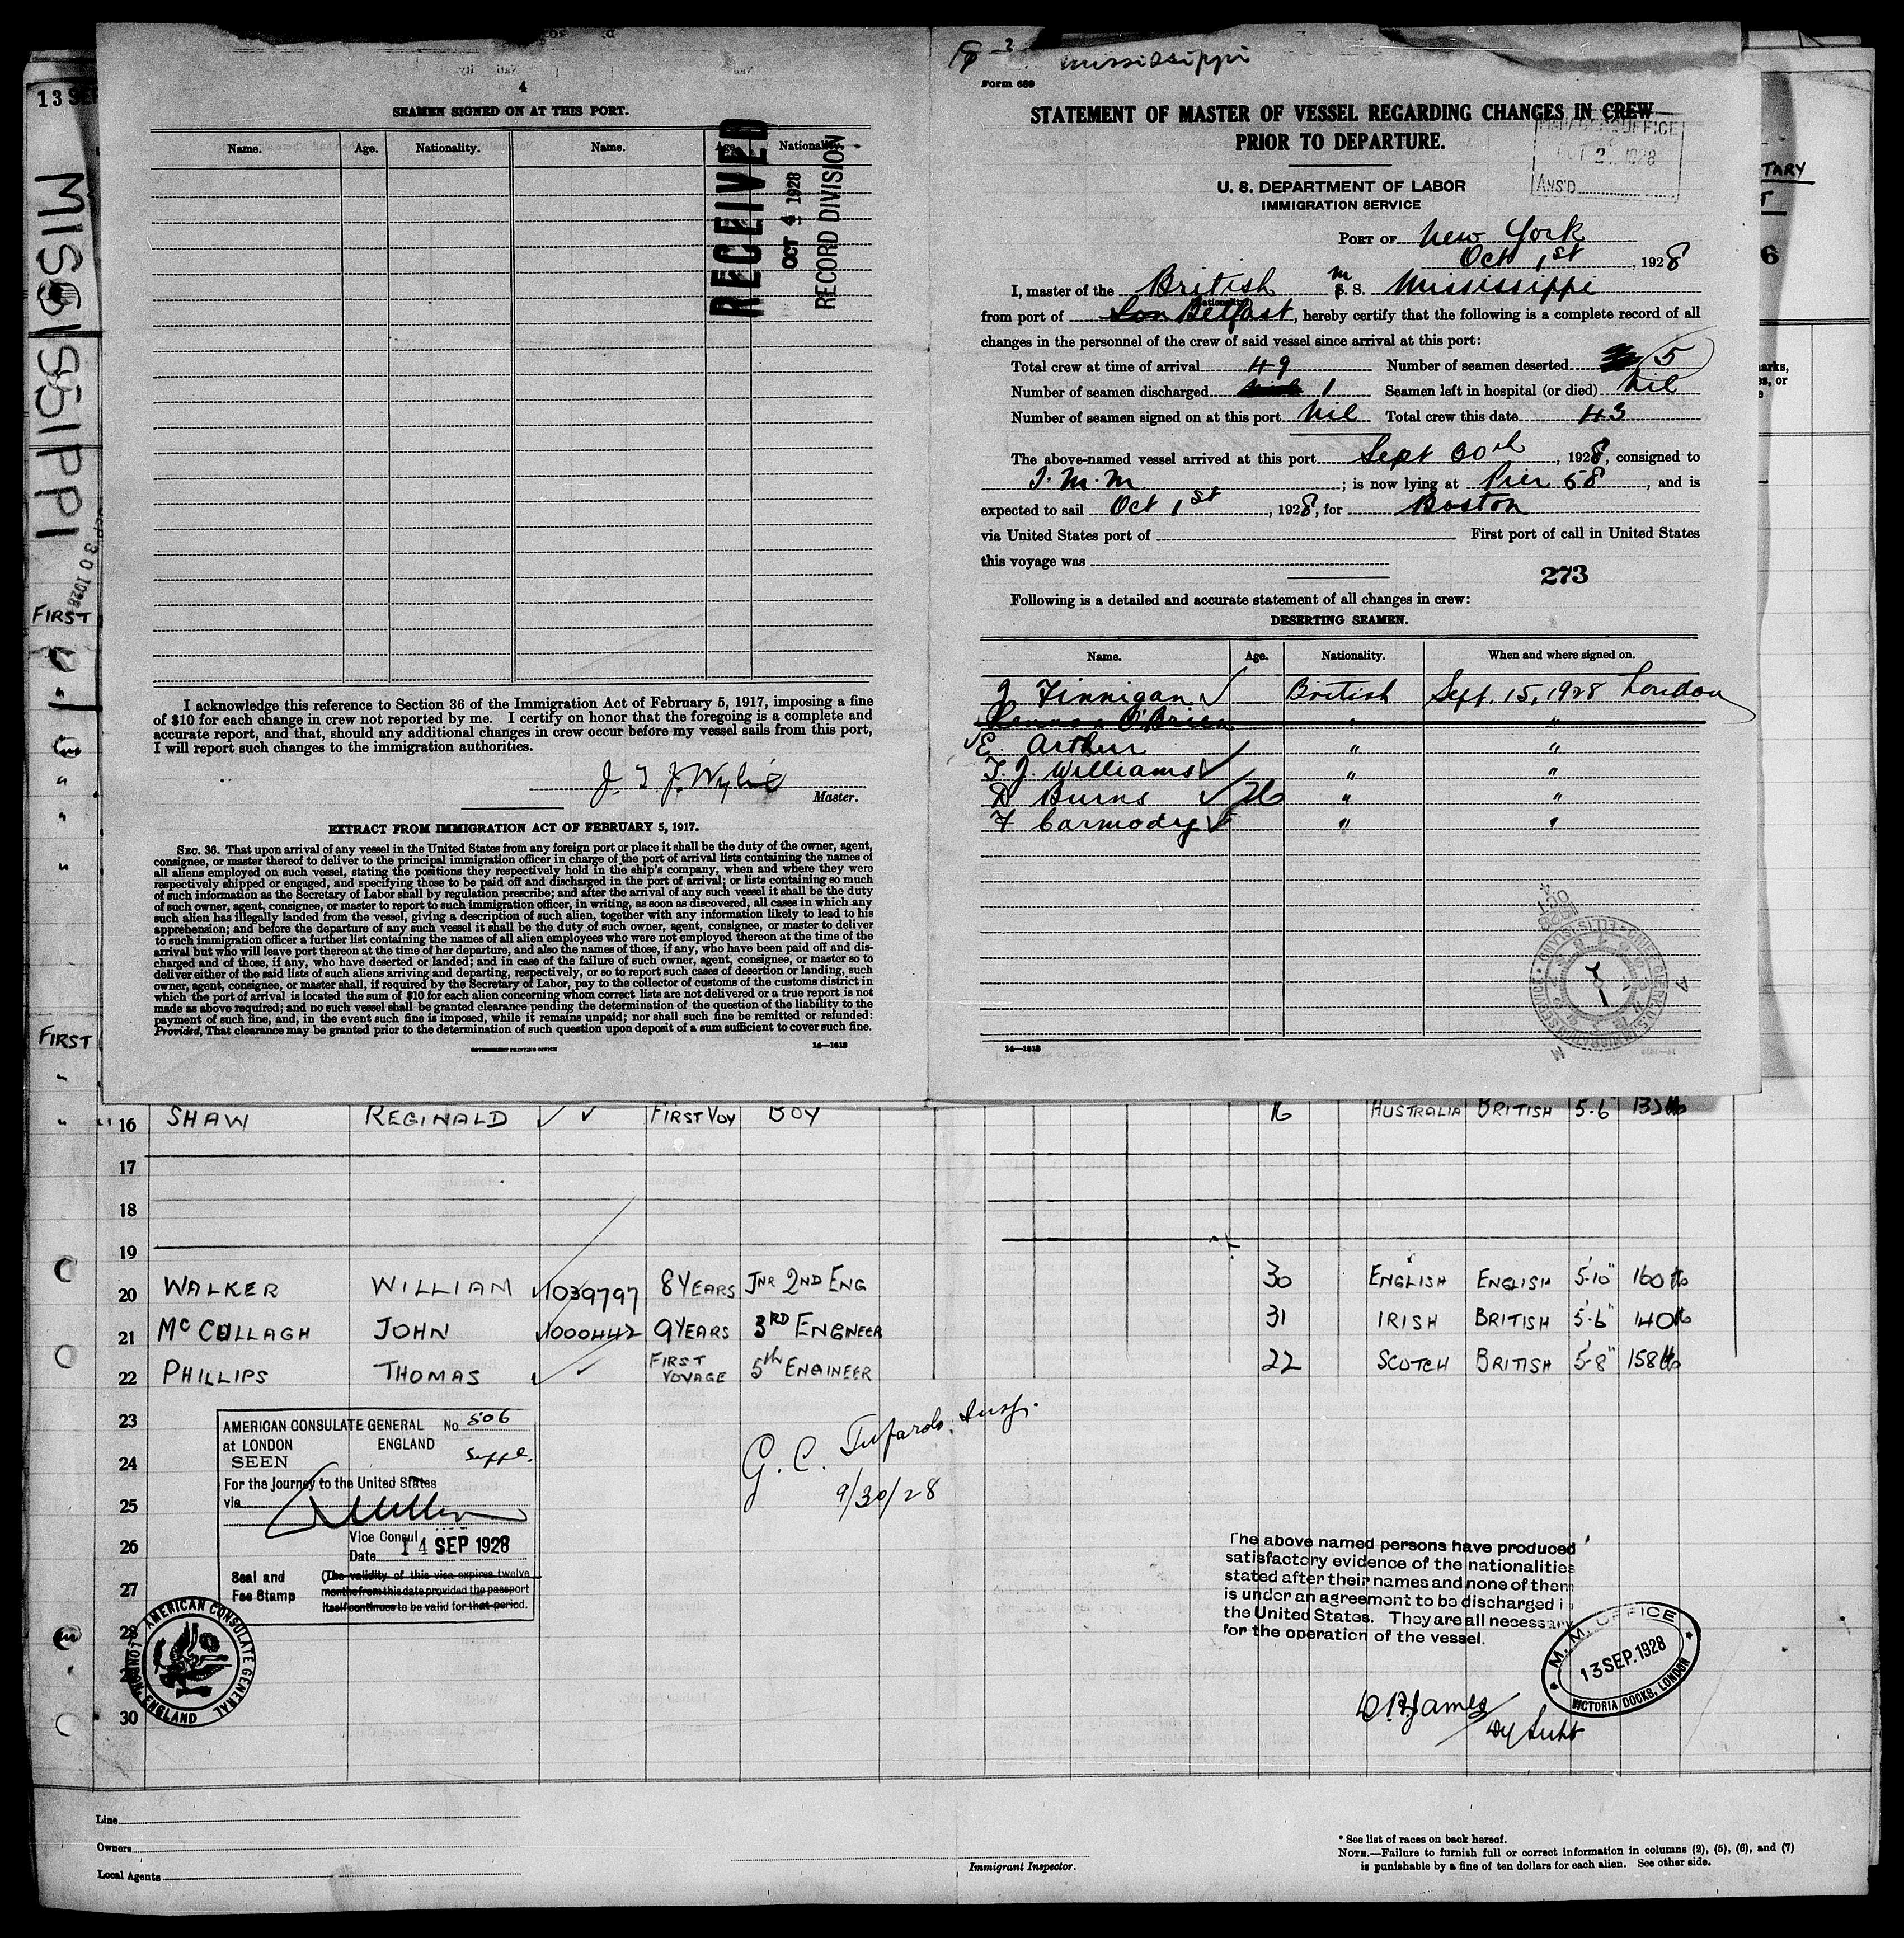 13 SEP
MISSISSIPPI
SEP 30 1928
FIRST
"
"
"
"
FIRST
"
"
4
SEAMEN SIGNED ON AT THIS PORT.
Name. Age. Nationality. Name. Age. Nationality.
RECEIVED
OCT 4 1928
RECORD DIVISION
I acknowledge this reference to Section 36 of the Immigration Act of February 5, 1917, imposing a fine
of $10 for each change in crew not reported by me. I certify on honor that the foregoing is a complete and
accurate report, and that, should any additional changes in crew occur before my vessel sails from this port,
I will report such changes to the immigration authorities.
J. T. J. Wylie
Master.
EXTRACT FROM IMMIGRATION ACT OF FEBRUARY 5, 1917.
SEC. 36. That upon arrival of any vessel in the United States from any foreign port or place it shall be the duty of the owner, agent,
consignee, or master thereof to deliver to the principal immigration officer in charge of the port of arrival lists containing the names of
all aliens employed on such vessel, stating the positions they respectively hold in the ship's company, when and where they were
respectively shipped or engaged, and specifying those to be paid off and discharged in the port of arrival; or lists containing so much
of such information as the Secretary of Labor shall by regulation prescribe; and after the arrival of any such vessel it shall be the duty
of such owner, agent, consignee, or master to report to such immigration officer, in writing, as soon as discovered, all cases in which any
such alien has illegally landed from the vessel, giving a description of such alien, together with any information likely to lead to his
apprehension; and before the departure of any such vessel it shall be the duty of such owner, agent, consignee, or master to deliver
to such immigration officer a further list containing the names of all alien employees who were not employed thereon at the time of the
arrival but who will leave port thereon at the time of her departure, and also the names of those, if any, who have been paid off and dis-
charged and of those, if any, who have deserted or landed; and in case of the failure of such owner, agent, consignee, or master so to
deliver either of the said lists of such aliens arriving and departing, respectively, or so to report such cases of desertion or landing, such
owner, agent, consignee, or master shall, if required by the Secretary of Labor, pay to the collector of customs of the customs district in
which the port of arrival is located the sum of $10 for each alien concerning whom correct lists are not delivered or a true report is not
made as above required; and no such vessel shall be granted clearance pending the determination of the question of the liability to the
payment of such fine, and, in the event such fine is imposed, while it remains unpaid; nor shall such fine be remitted or refunded:
Provided, That clearance may be granted prior to the determination of such question upon deposit of a sum sufficient to cover such fine.
GOVERNMENT PRINTING OFFICE 14—1613
Mississippi
Form 689
STATEMENT OF MASTER OF VESSEL REGARDING CHANGES IN CREW
PRIOR TO DEPARTURE.
OFFICE
OCT 2 1928
ANS'D
U. S. DEPARTMENT OF LABOR
IMMIGRATION SERVICE
PORT OF New York
Oct 1st, 1928
I, master of the British M S. Mississippi
(Nationality)
from port of Lon Belfast, hereby certify that the following is a complete record of all
changes in the personnel of the crew of said vessel since arrival at this port:
Total crew at time of arrival 49 Number of seamen deserted 5
Number of seamen discharged 1 Seamen left in hospital (or died) Nil
Number of seamen signed on at this port Nil Total crew this date 43
The above-named vessel arrived at this port Sept 30th, 1928, consigned to
I.M.M. ; is now lying at Pier 58, and is
expected to sail Oct 1st, 1928, for Boston
via United States port of First port of call in United States
this voyage was
273
Following is a detailed and accurate statement of all changes in crew:
DESERTING SEAMEN.
Name. Age. Nationality. When and where signed on.
J Finnigan ✓ British Sept. 15, 1928 London
O'Brien " "
✓ E. Arthur " "
T. J. Williams ✓ " "
D Burns ✓ 26 " "
F Carmody ✓ " "
14—1613
TARY
6
16 SHAW REGINALD ✓ ✓ FIRST VOY BOY 16 AUSTRALIA BRITISH 5-6 135 lb
17
18
19
20 WALKER WILLIAM ✓ 1039797 8 YEARS JNR 2ND ENG 30 ENGLISH ENGLISH 5-10" 160 lb
21 McCULLAGH JOHN ✓ 1000442 9 YEARS 3RD ENGNEER 31 IRISH BRITISH 5-6" 140 lb
22 PHILLIPS THOMAS ✓ ✓ FIRST VOYAGE 5th ENGINEER 22 SCOTCH BRITISH 5-8" 158 lb
23
24
25
26
27
28
29
30
AMERICAN CONSULATE GENERAL No. 506
at LONDON ENGLAND
SEEN Suppl.
For the journey to the United States
via
Vice Consul
Date 14 SEP 1928
Seal and (The validity of this visa expires twelve
Fee Stamp months from this date provided the passport
itself continues to be valid for that period.
AMERICAN CONSULATE GENERAL
LONDON, ENGLAND
G. C. Insp.
9/30/28
The above named persons have produced
satisfactory evidence of the nationalities
stated after their names and none of them
is under an agreement to be discharged in
the United States. They are all necessary
for the operation of the vessel.
M. M. OFFICE
13 SEP. 1928
VICTORIA DOCKS, LONDON
James
Dy Supt
Line
Owners
Local Agents
Immigrant Inspector.
* See list of races on back hereof.
NOTE.—Failure to furnish full or correct information in columns (2), (5), (6), and (7)
is punishable by a fine of ten dollars for each alien. See other side.